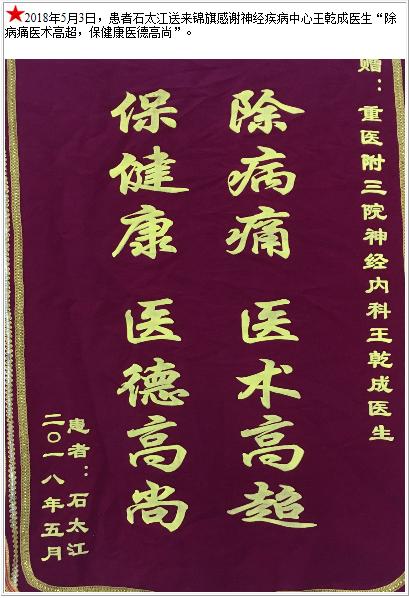 ★2018年5月3日，患者石太江送来锦旗感谢神经疾病中心王乾成医生“除
病痛医术高超，保健康医德高尚”。
赠：重医附三院神经内科王乾成医生
除病痛 医术高超
保健康 医德高尚
患者：石太江
二〇一八年五月